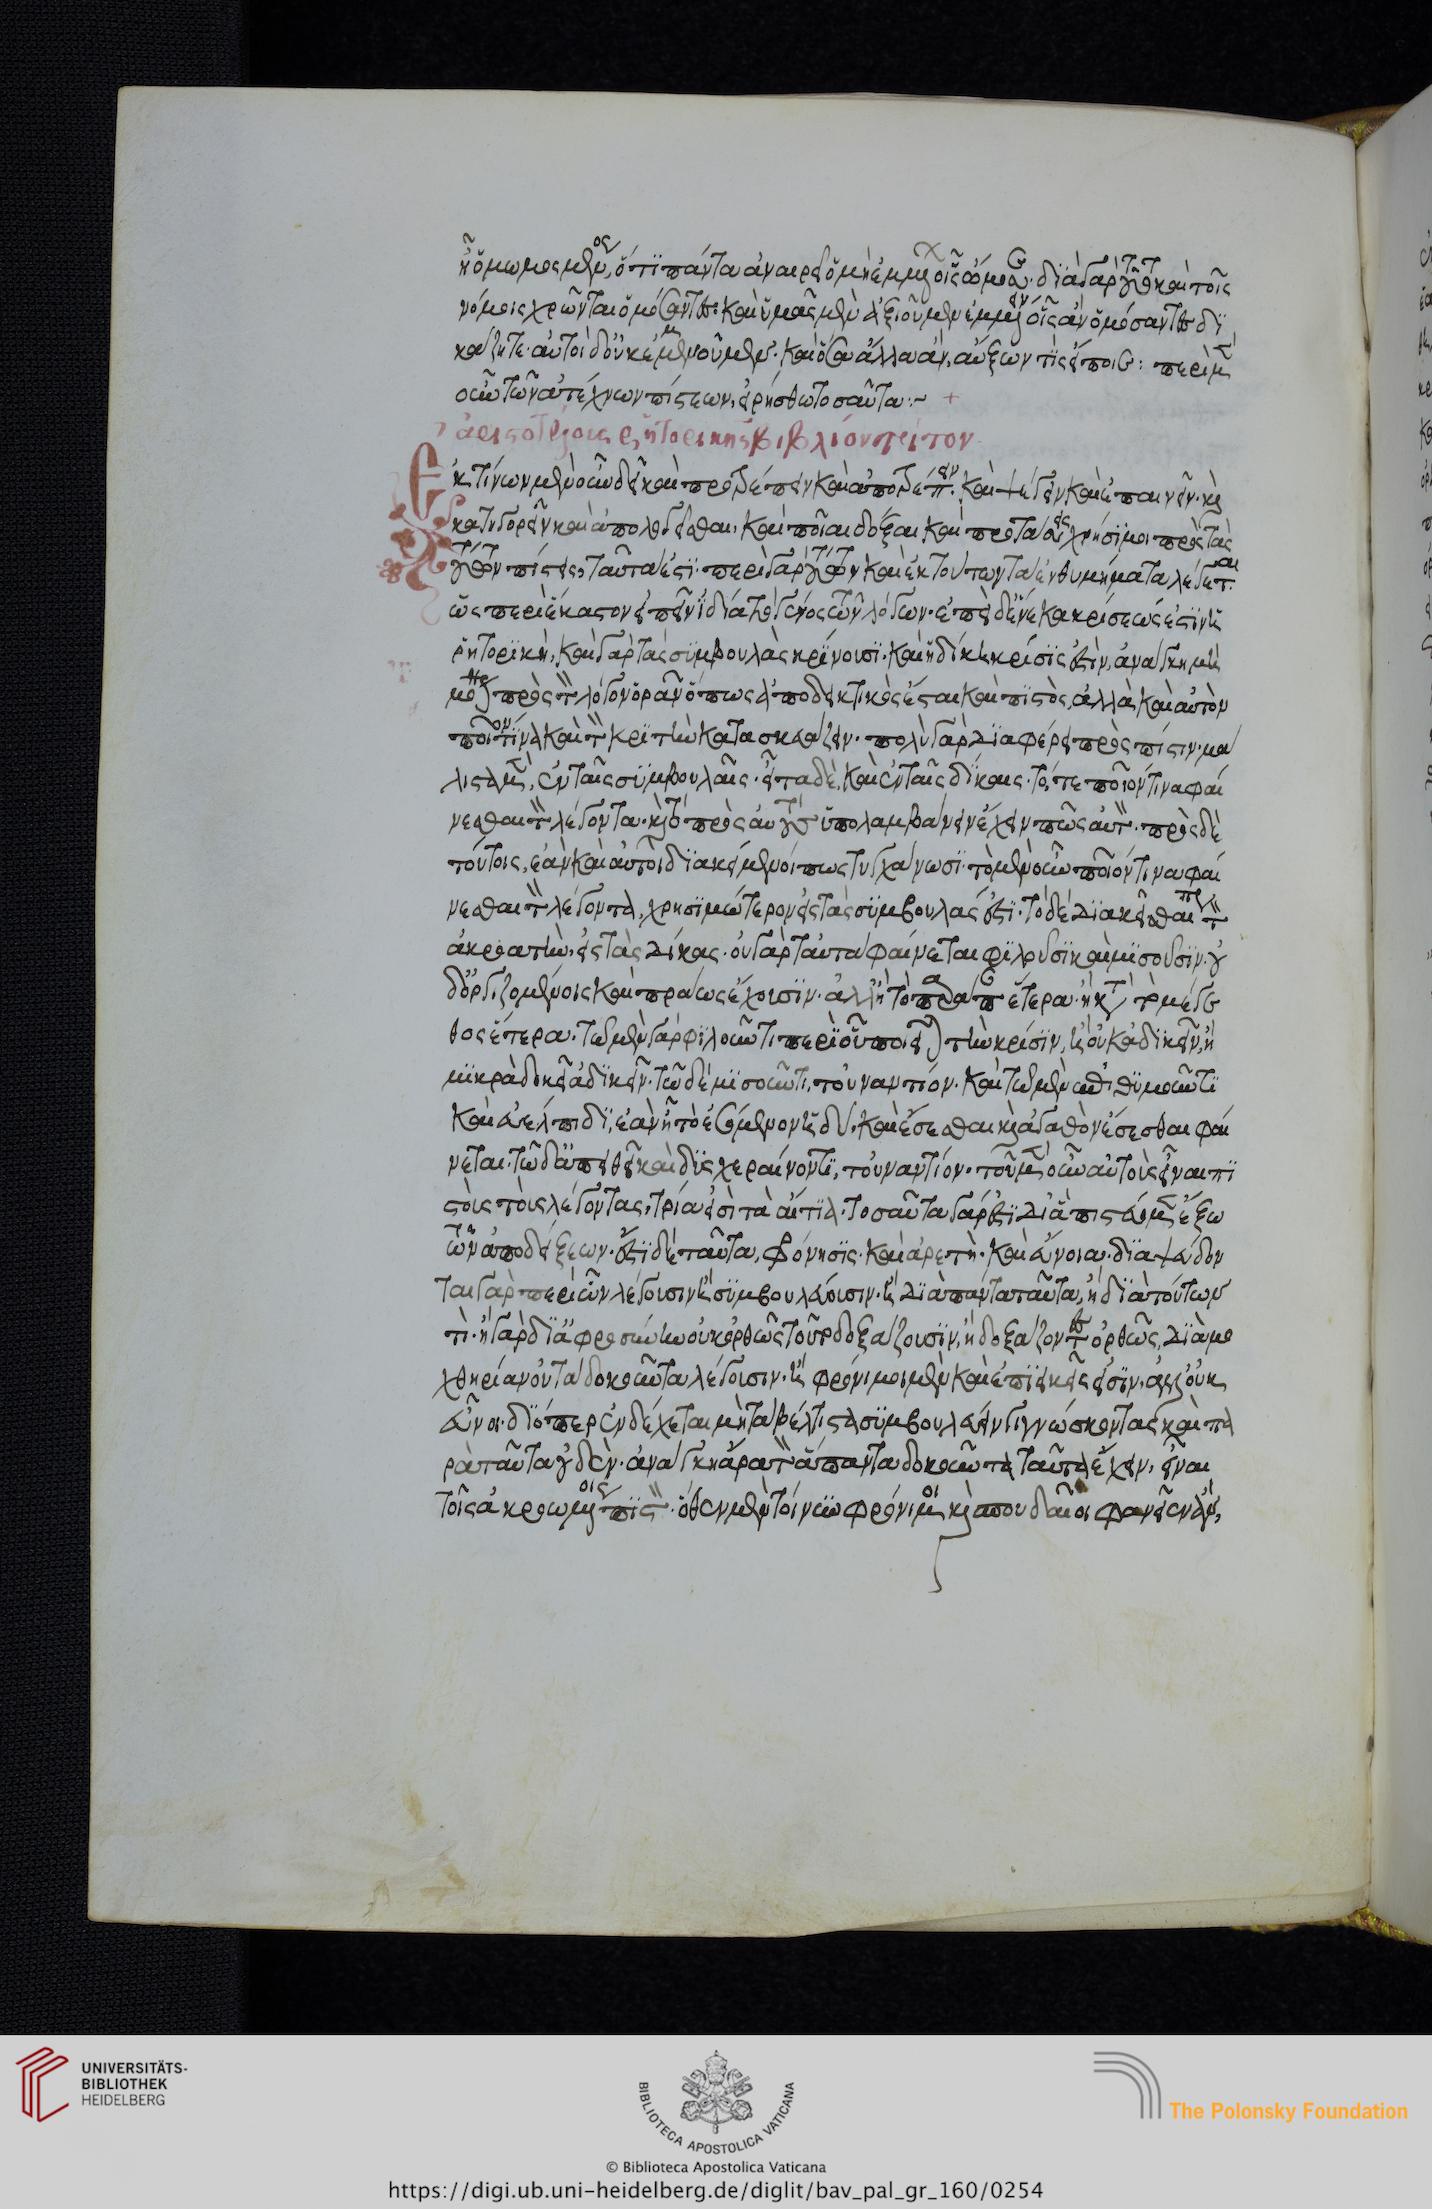 ἢ ὀμωμοσμένος, ὅτι πάντα ἀναιρεῖ ὁ μὴ ἐμμένων οἷς ὤμοσεν. διὰ γὰρ τοῦτο καὶ τοῖς
νόμοις χρῶνται ὀμόσαντες. καὶ ὑμᾶς μὲν ἀξιοῦμεν ἐμμένειν οἷς ἂν ὀμόσαντες δι
κάζητε. αὐτοὶ δ' οὐκ ἐμμενοῦμεν. καὶ ὅσα ἄλλα ἂν, αὔξων τὶς εἴποι: περὶ μὲν
οὖν τῶν ἀτέχνων πίστεων, εἰρήσθω τοσαῦτα:~ +
ἀριστοτέλους ῥητορικῆς βιβλίον τρίτον
Ἐκ τίνων μὲν οὖν δεῖ καὶ προτρέπειν καὶ ἀποτρέπειν. καὶ ψέγειν καὶ ἐπαινεῖν. καὶ
κατηγορεῖν καὶ ἀπολογεῖσθαι, καὶ ποῖαι δόξαι καὶ προτάσεις χρήσιμοι πρὸς τὰς
τούτων πίστεις, ταῦτα ἐστὶ. περὶ γὰρ τούτων καὶ ἐκ τούτων τὰ ἐνθυμήματα λέγεται
ὡς περὶ ἕκαστον εἰπεῖν ἰδίᾳ τὸ γένος τῶν λόγων. ἐπεὶ δ' ἕνεκα κρίσεώς ἐστιν ἡ
ῥητορικὴ, καὶ γὰρ τὰς συμβουλὰς κρίνουσι. καὶ ἡ δίκη κρίσις ἐστὶν, ἀνάγκη μὴ
μόνον πρὸς τὸν λόγον ὁρᾶν ὅπως ἀποδεικτικὸς ἔσται καὶ πιστὸς, ἀλλὰ καὶ αὐτὸν
ποῖόν τινα καὶ τὸν κριτὴν κατασκευάζειν. πολὺ γὰρ διαφέρει πρὸς πίστιν. μά
λιστα μὲν, ἐν ταῖς συμβουλαῖς. εἶτα δὲ, καὶ ἐν ταῖς δίκαις. τό, τε ποιόν τινα φαί
νεσθαι τὸν λέγοντα. καὶ τὸ πρὸς αὐτοὺς ὑπολαμβάνειν ἔχειν πως αὐτόν. πρὸς δὲ
τούτοις, ἐὰν καὶ αὐτοὶ διακείμενοί πως τυγχάνωσι. τὸ μὲν οὖν ποιόν τινα φαί
νεσθαι τὸν λέγοντα, χρησιμώτερον εἰς τὰς συμβουλάς ἐστι. τὸ δὲ διακεῖσθαί πως τὸν
ἀκροατὴν, εἰς τὰς δίκας. οὐ γὰρ ταὐτὰ φαίνεται φιλοῦσι καὶ μισοῦσιν. οὐ
δ' ὀργιζομένοις καὶ πράως ἔχουσιν. ἀλλ' ἢ τὸ παράπαν ἕτερα. ἢ κατὰ τὸ μέγε
θος ἕτερα. τῷ μὲν γὰρ φιλοῦντι περὶ οὗ ποιεῖται τὴν κρίσιν, ἢ οὐκ ἀδικεῖν, ἢ
μικρὰ δοκεῖ ἀδικεῖν. τῷ δὲ μισοῦντι, τοὐναντίον. καὶ τῷ μὲν ἐπιθυμοῦντι
καὶ εὐέλπιδι, ἐὰν ᾖ τὸ ἐσόμενον ἡδύ. καὶ ἔσεσθαι καὶ ἀγαθὸν ἔσεσθαι φαί
νεται. τῷ δ' ἀπαθεῖ καὶ δυσχεραίνοντι, τοὐναντίον. τοῦ μὲν οὖν αὐτοὺς εἶναι πι
στοὺς τοὺς λέγοντας, τρία εἰσὶ τὰ αἴτια. τοσαῦτα γάρ ἐστι δι' ἃ πιστεύομεν ἔξω
τῶν ἀποδείξεων. ἔστι δὲ ταῦτα, φρόνησις. καὶ ἀρετὴ. καὶ εὔνοια. διαψεύδον
ται γὰρ περὶ ὧν λέγουσιν ἢ συμβουλεύουσιν. ἢ διὰ πάντα ταῦτα, ἢ διὰ τούτων
τὶ. ἢ γὰρ δι' ἀφροσύνην οὐκ ὀρθῶς τοῦτο δοξάζουσιν, ἢ δοξάζοντες ὀρθῶς, διὰ μο
χθηρίαν οὐ τὰ δοκοῦντα λέγουσιν. ἢ φρόνιμοι μὲν καὶ ἐπιεικεῖς εἰσὶν, ἀλλ' οὐκ
εὖνοι. διόπερ ἐνδέχεται μὴ τὰ βέλτιστα συμβουλεύειν γιγνώσκοντας καὶ πα
ρὰ ταῦτα οὐδέν. ἀνάγκη ἄρα τὸν ἅπαντα δοκοῦντα ταῦτα ἔχειν, εἶναι
τοῖς ἀκροωμένοις πιστόν. ὅθεν μὲν τοίνυν φρόνιμοι καὶ σπουδαῖοι φανεῖεν ἄν,
UNIVERSITÄTS-
BIBLIOTHEK
HEIDELBERG
BIBLIOTECA APOSTOLICA VATICANA
The Polonsky Foundation
© Biblioteca Apostolica Vaticana
https://digi.ub.uni-heidelberg.de/diglit/bav_pal_gr_160/0254